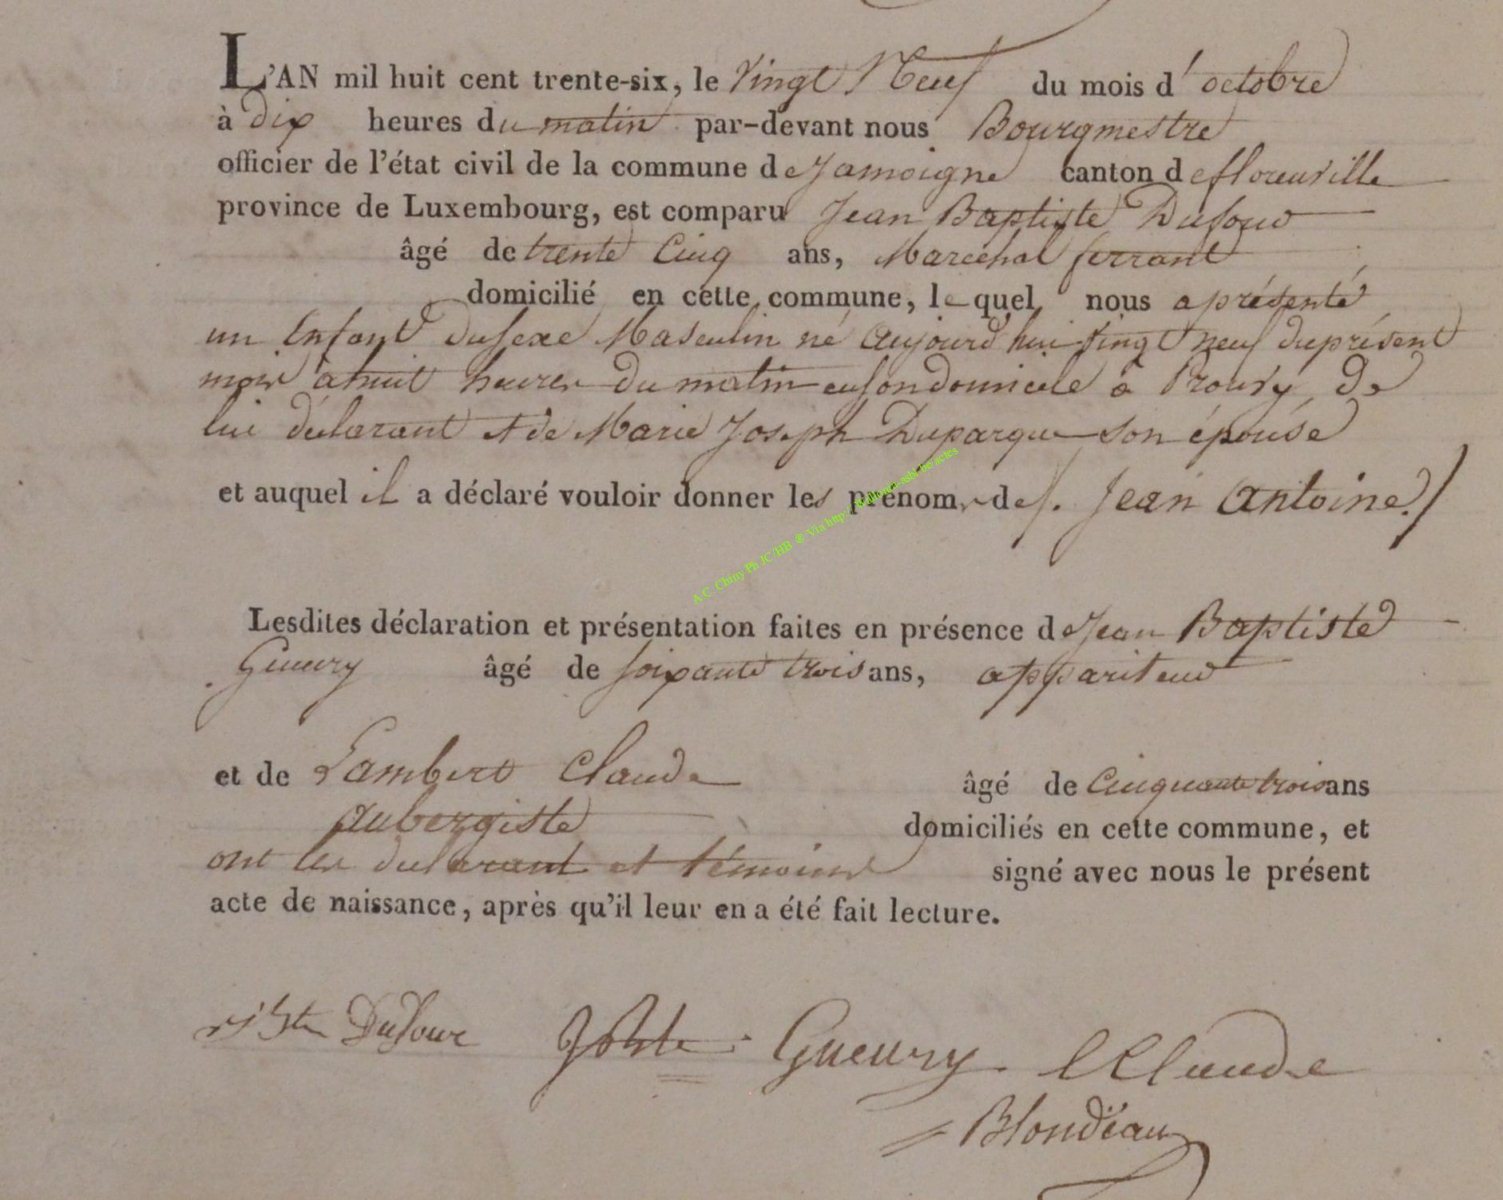 L'AN mil huit cent trente-six, le Vingt Neuf du mois d'octobre
à dix heures du matin par-devant nous Bourgmestre
officier de l'état civil de la commune de Jamoigne canton de florenville
province de Luxembourg, est comparu Jean Baptiste Dufour
âgé de trente Cinq ans, Maréchal ferrant
domicilié en cette commune, lequel nous a présenté
un Enfant du sexe Masculin né aujourd'hui vingt neuf du présent
mois à huit heures du matin en son domicile à Prouvy, De
lui déclarant et de Marie Joseph Duparque son épouse
et auquel il a déclaré vouloir donner les prénoms de Jean Antoine
Lesdites déclaration et présentation faites en présence de Jean Baptiste
Gueury âgé de soixante trois ans, appariteur
et de Lambert Claude âgé de Cinquante trois ans
aubergiste domiciliés en cette commune, et
ont les déclarant et témoins signé avec nous le présent
acte de naissance, après qu'il leur en a été fait lecture.
Dufour Gueury Claude
Blondeau
A.C. Chiny Ph JC HB